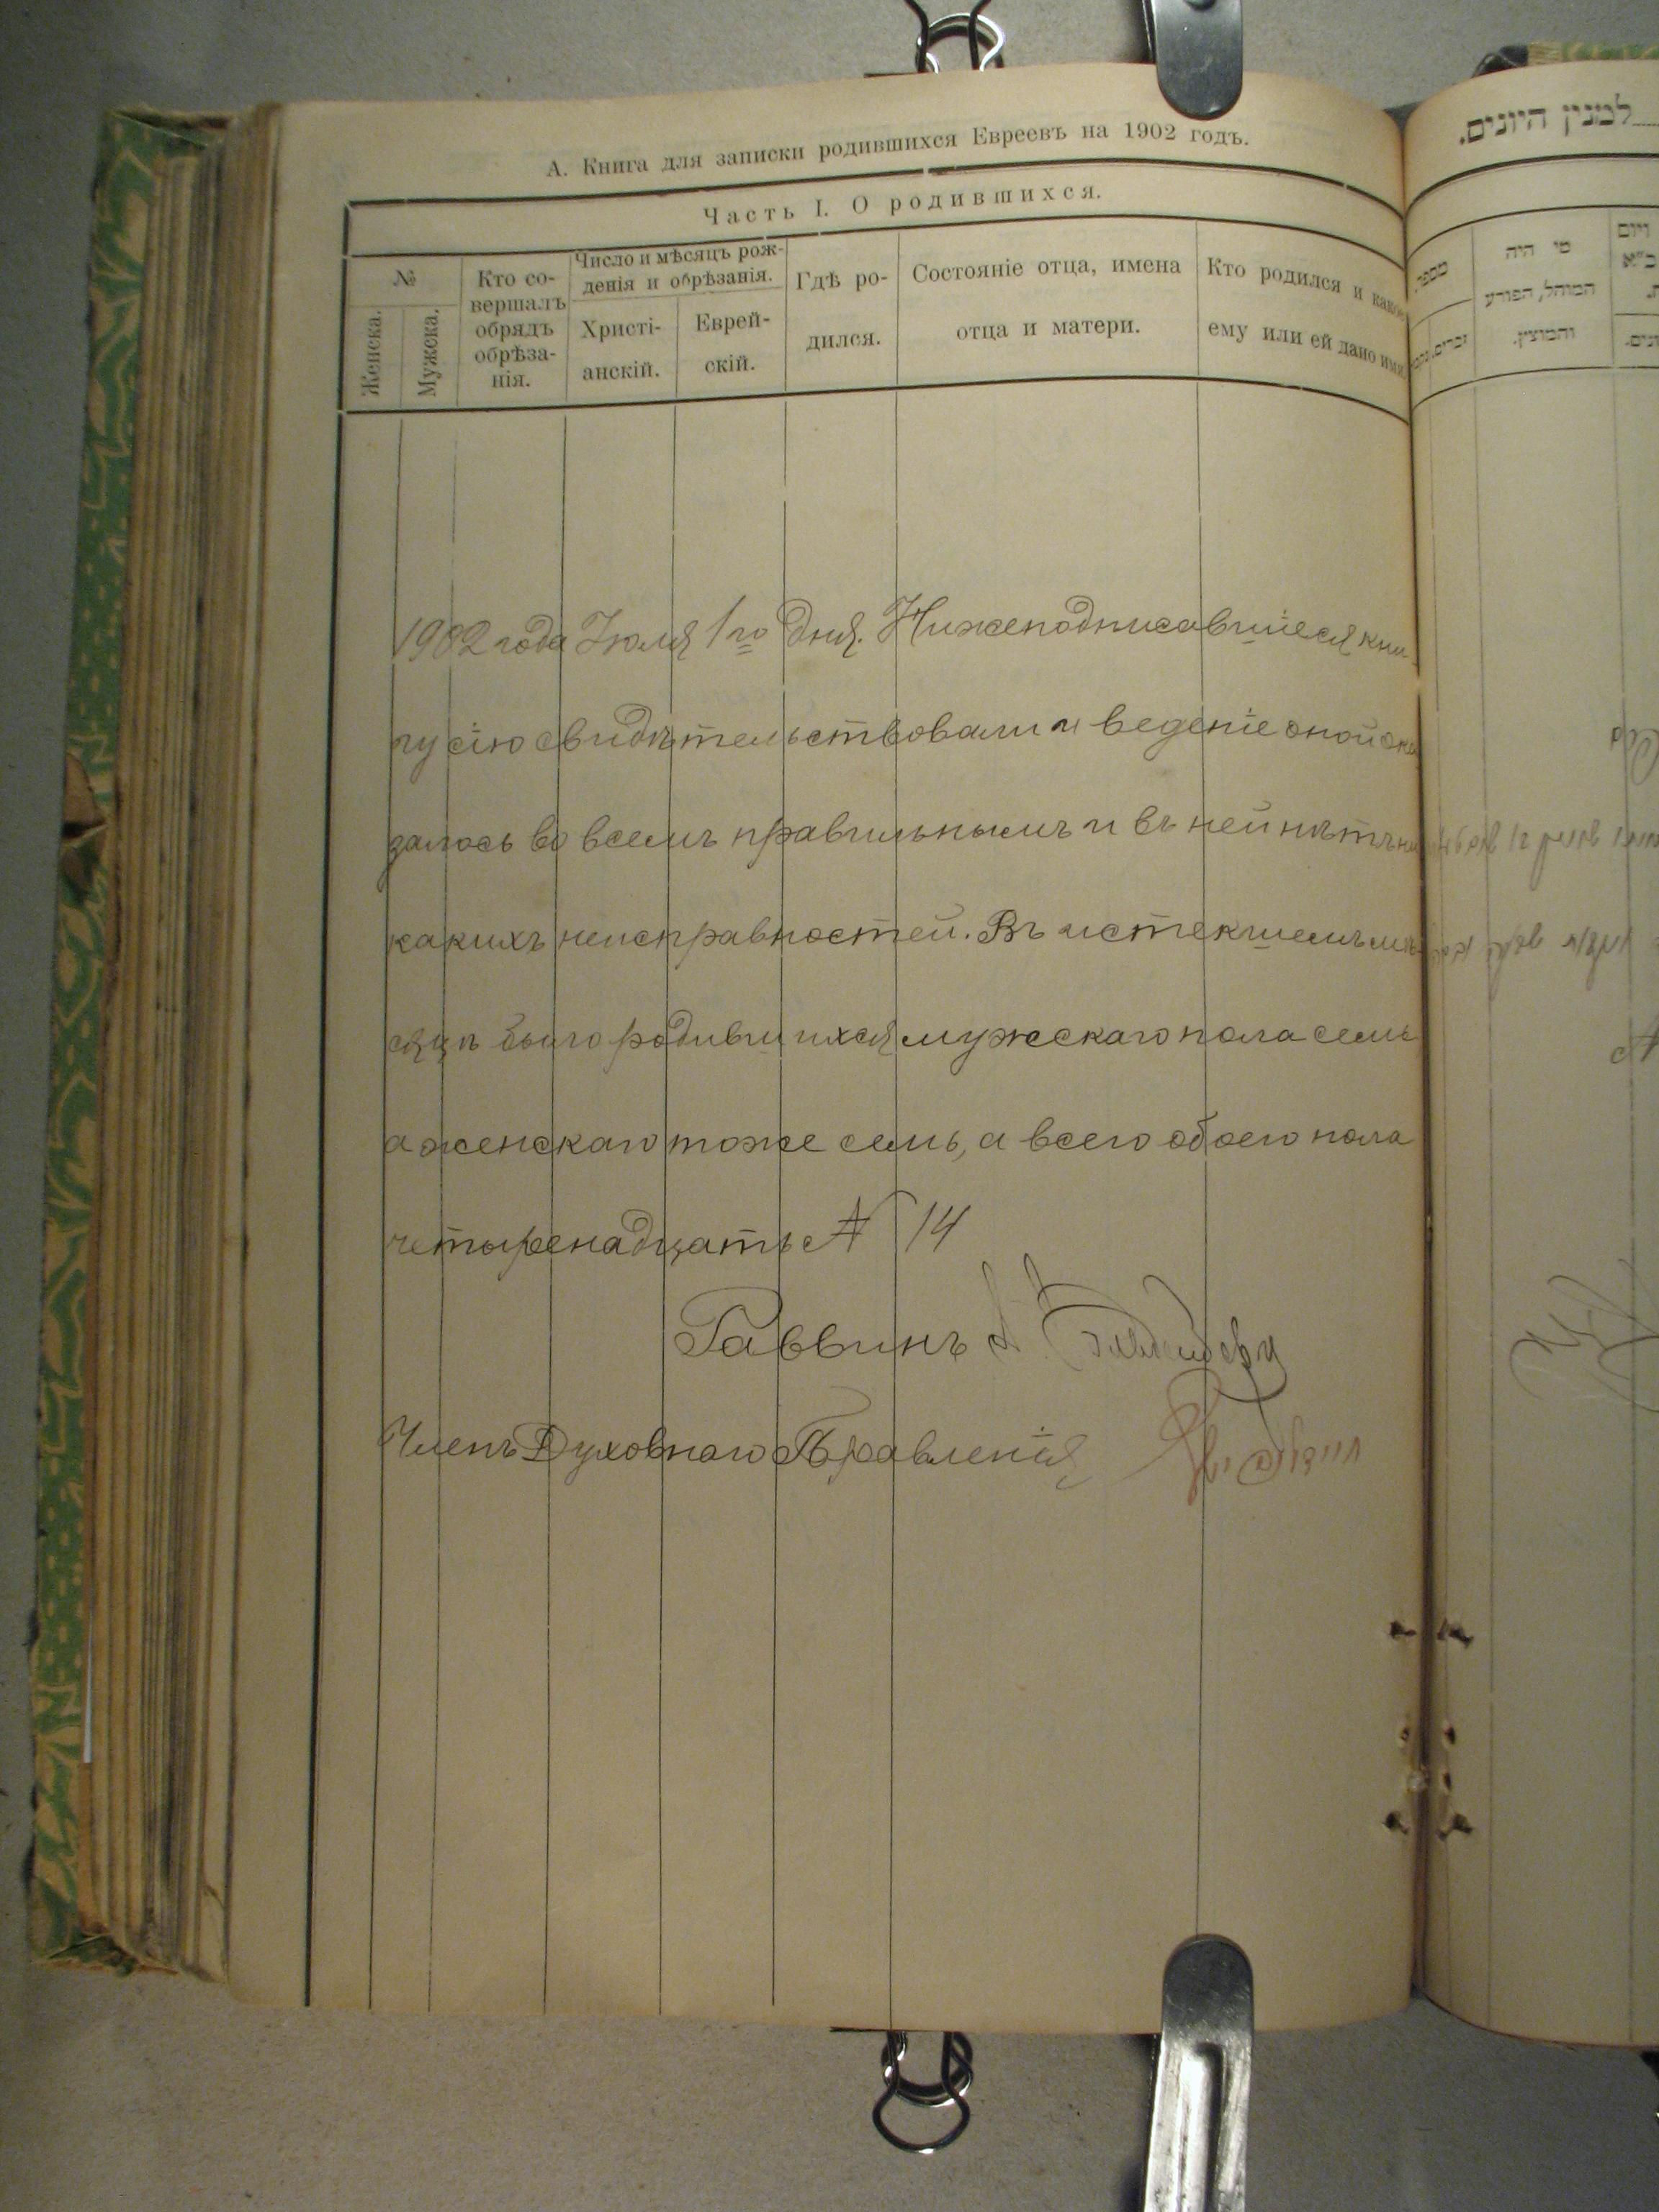 А. Книга для записки родившихся Евреевъ на 1902 годъ.
Часть I. О родившихся.
№
Женска.
Мужска.
Кто со-
вершалъ
обрядъ
обрѣза-
нія.
Число и мѣсяцъ рож-
денія и обрѣзанія.
Христі-
анскій.
Еврей-
скій.
Гдѣ ро-
дился.
Состояніе отца, имена
отца и матери.
Кто родился и какое
ему или ей дано имя.
1902 года Іюля 1го дня. Нижеподписавшіеся кни-
гу сію свидѣтельствовали и веденіе оной ока
залось во всемъ правильнымъ и въ ней нѣтъ ни
какихъ неисправностей. Въ истекшемъ мѣ-
сяцѣ было родившихся мужскаго пола семь
а женскаго тоже семь, а всего обоего пола
четыренадцать № 14
Раввинъ
Членъ Духовнаго Правленія
למנין היונים.
מספר
זכרים.
מי היה
המוהל, הפורע
והמוצץ.